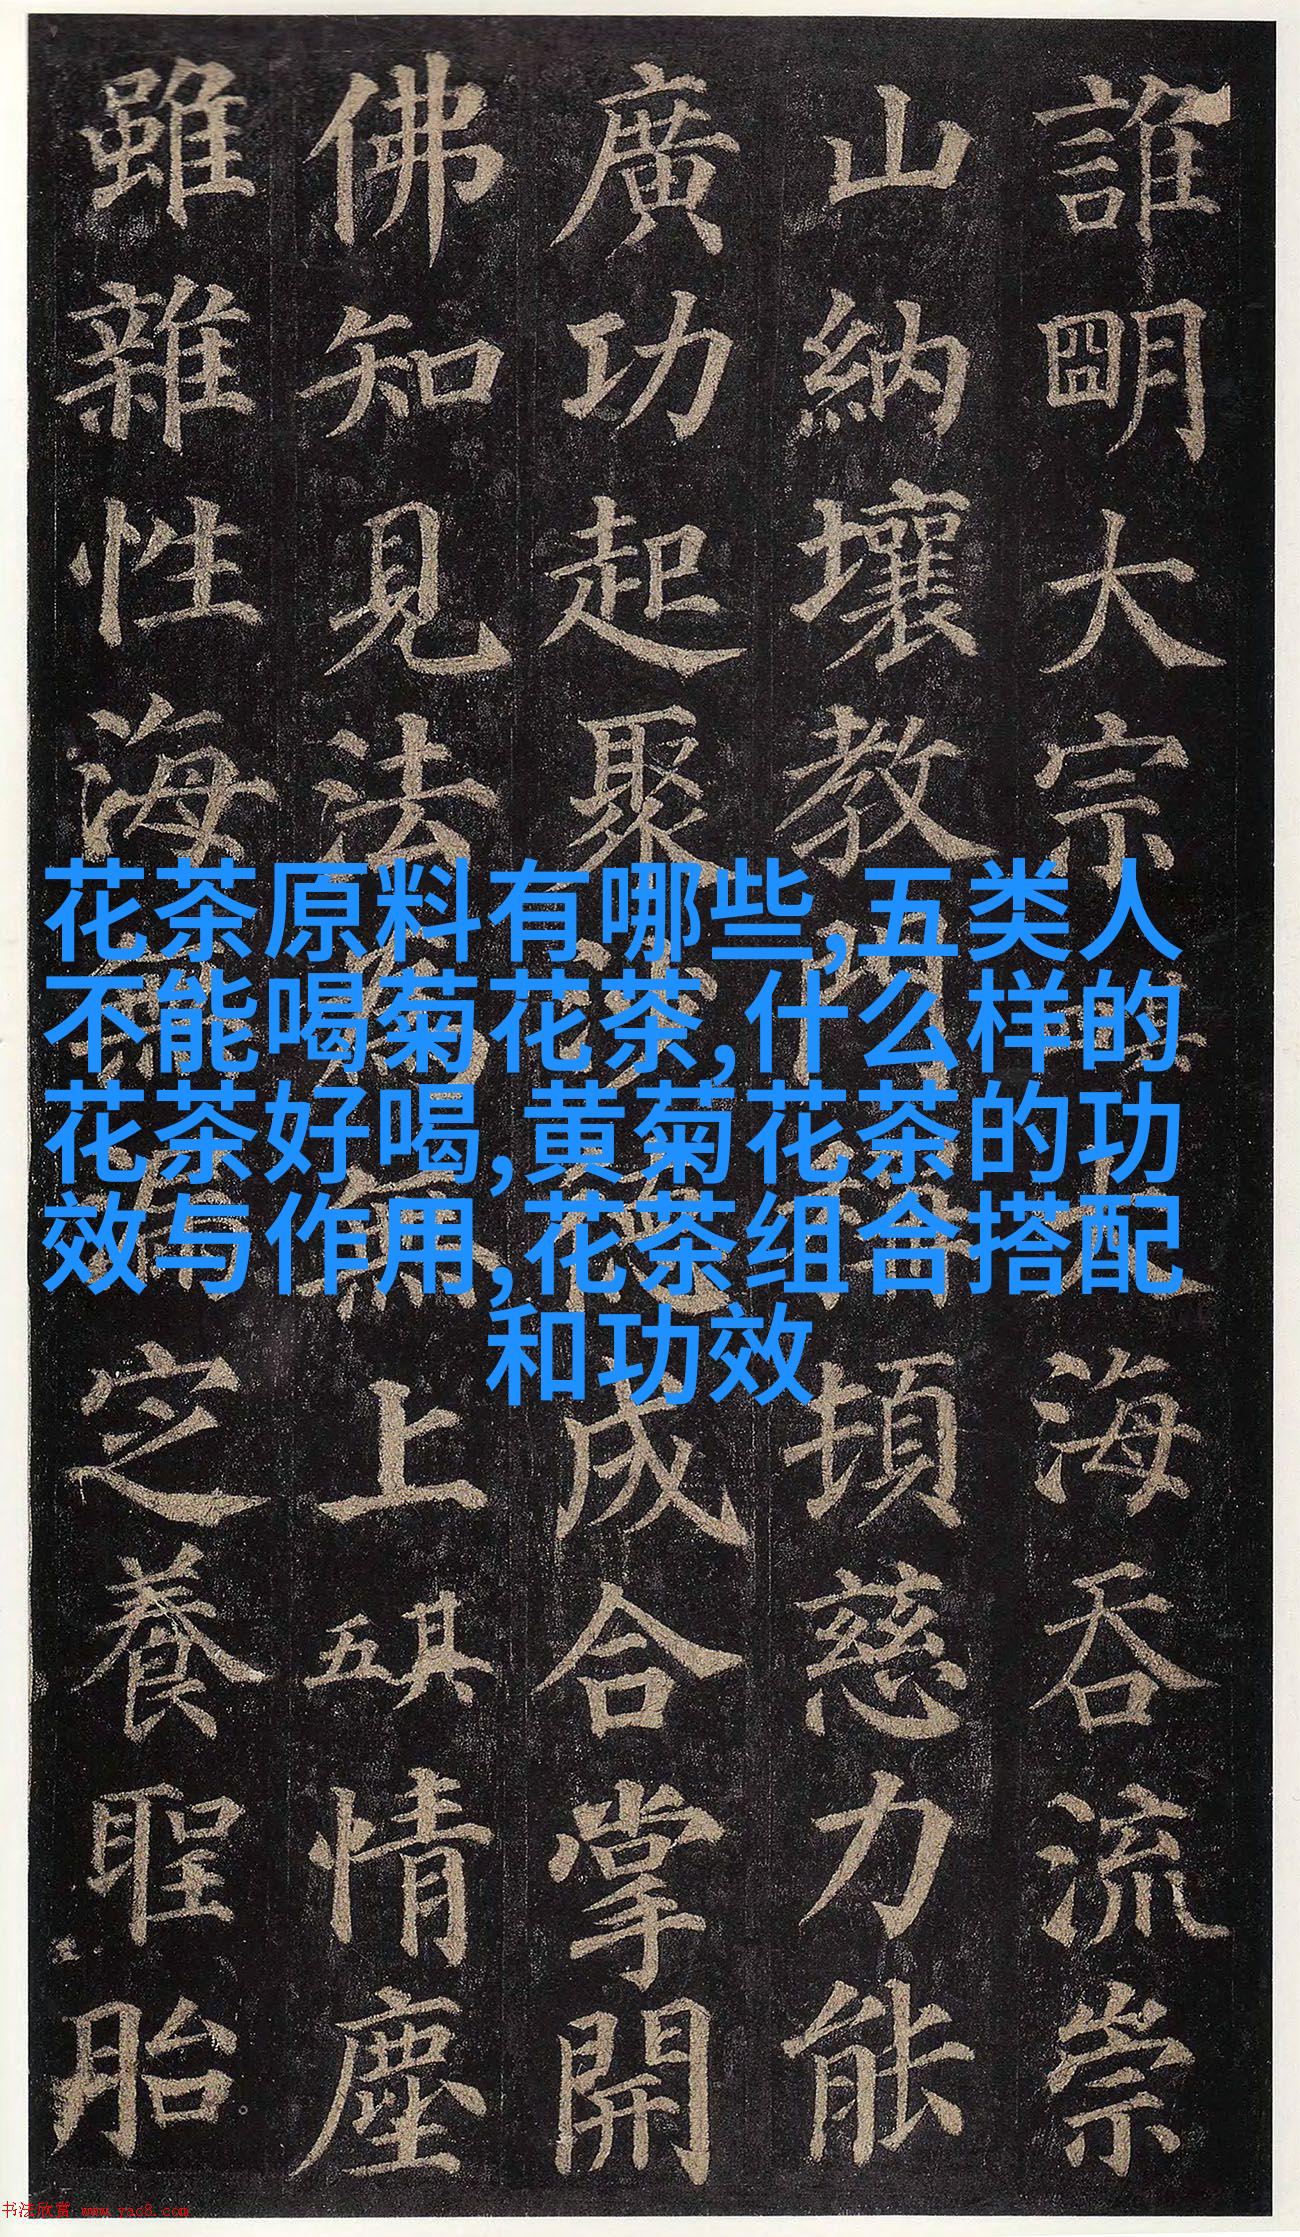 誰明大宗海吞流崇
山納壤教門頓慈力能
廣功起聚成合掌開
佛知見法無上其五情塵
雖雜性海定養聖胎
花茶原料有哪些,五类人
不能喝菊花茶,什么样的
花茶好喝,黄菊花茶的功
效与作用,花茶组合搭配
和功效
书法欣赏 www.yac8.com